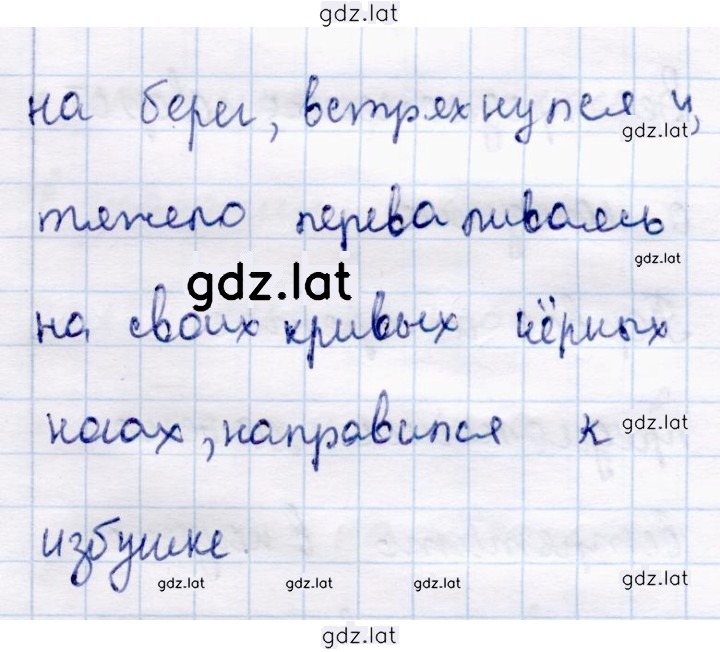 gdz.lat
на берег, встряхнулся и,
gdz.lat
тяжело переваливаясь
gdz.lat
gdz.lat
на своих кривых чёрных
ногах, направился к
gdz.lat
избушке.
gdz.lat gdz.lat gdz.lat gdz.lat
gdz.lat